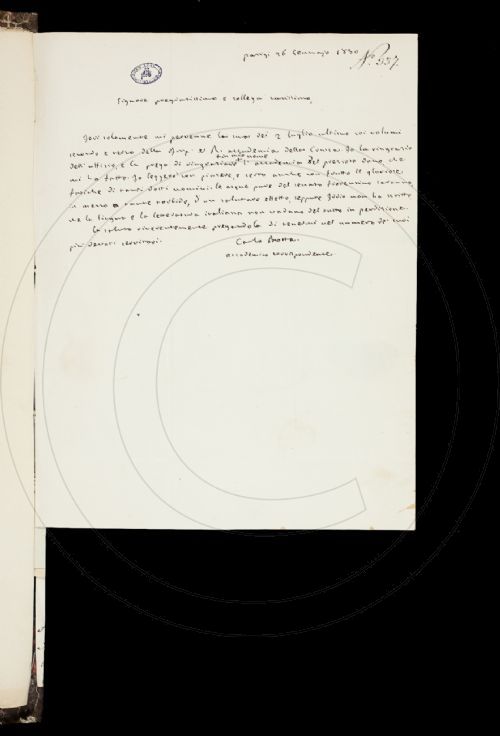 parigi 26 Gennajo 1830
N.° 537.
Signore pregiatissimo e collega carissimo,
Jeri solamente mi pervenne la sua dei 2 luglio ultimo coi volumi
secondo e terzo della Imp. e R. accademia della Crusca. Io la ringrazio
dell'uffizio, e la prego di ringraziare in mio nome l'accademia del prezioso dono che
mi ha fatto. Io leggerò con piacere, e certo anche con frutto le gloriose
fatiche di tanti dotti uomini: le acque pure del senato fiorentino saranno
in mezzo a tante torbide, d'un salutare effetto, seppure Iddio non ha scritto
che la lingua e la letteratura italiana non vadano del tutto in perdizione.
La saluto riverentemente pregandola di tenermi nel numero de' suoi
più devoti servitori.
Carlo Botta.
accademico corrispondente.